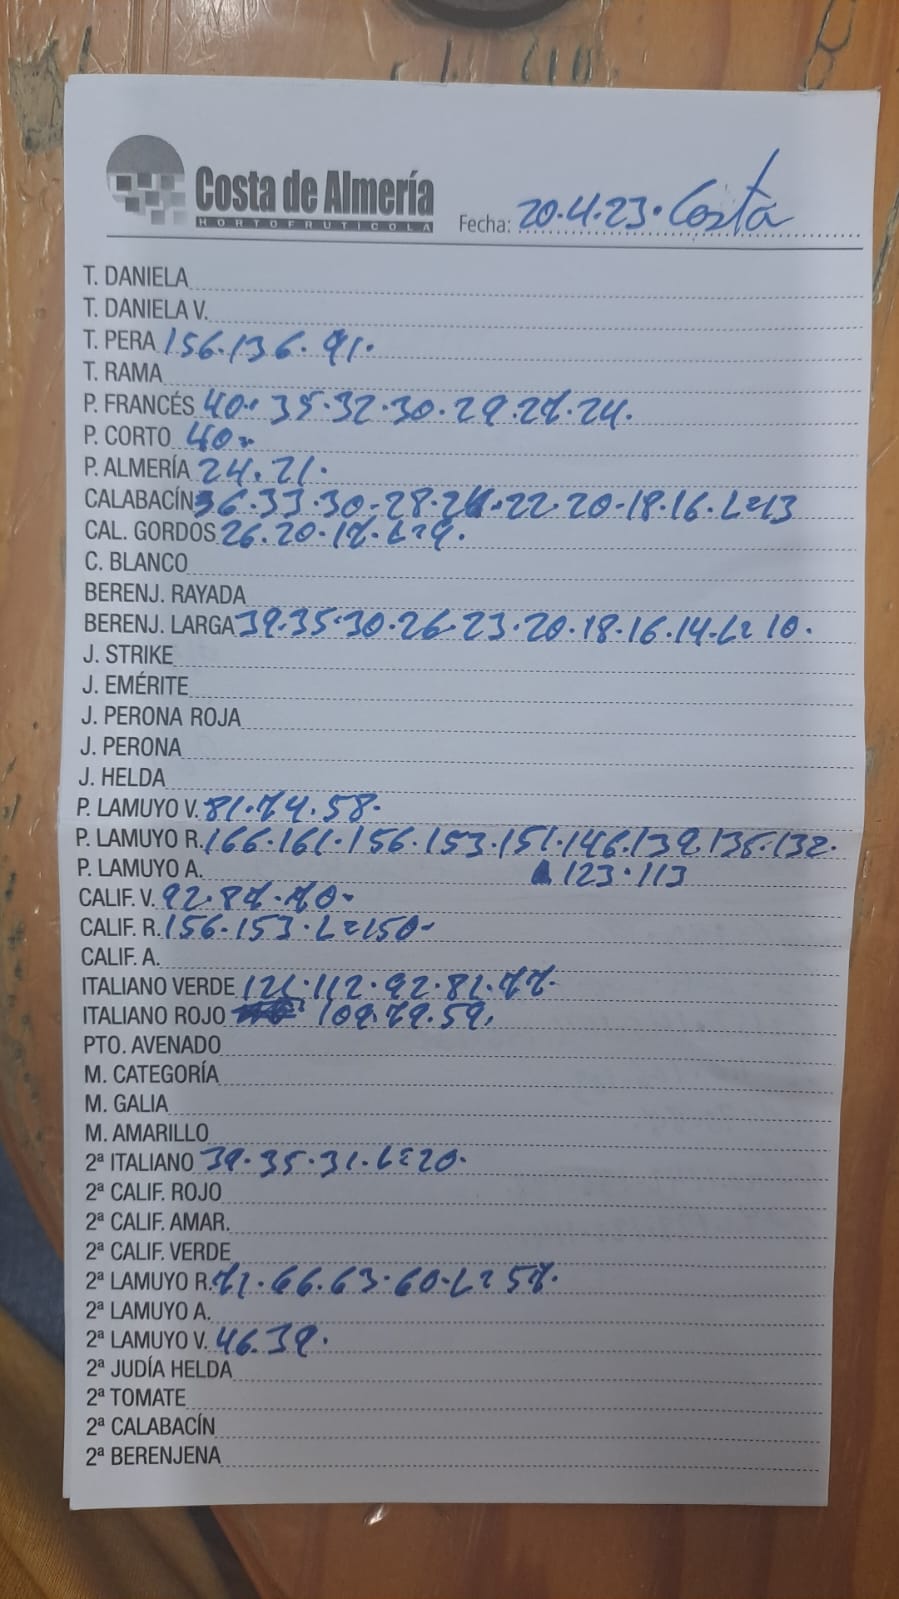 Costa de Almería
HORTOFRUTICOLA
Fecha: 20.4.23. Costa
T. DANIELA
T. DANIELA V.
T. PERA 156.136. 91.
T. RAMA
P. FRANCÉS 40. 35.32.30.29.27.24.
P. CORTO 40=
P. ALMERÍA 24.21.
CALABACÍN 36.33.30-28.24.22.20-18.16.L=13
CAL. GORDOS 26.20.17.L=9.
C. BLANCO
BERENJ. RAYADA
BERENJ. LARGA 39.35.30.26.23.20.18.16.14.L=10.
J. STRIKE
J. EMÉRITE
J. PERONA ROJA
J. PERONA
J. HELDA
P. LAMUYO V. 81.74.58.
P. LAMUYO R. 166.161.156.153.151.146.139.135.132.
P. LAMUYO A. 123.113
CALIF. V. 92.87.70.
CALIF. R. 156.153.L=150-
CALIF. A.
ITALIANO VERDE 121.112.92.81.77.
ITALIANO ROJO 109.79.59.
PTO. AVENADO
M. CATEGORÍA
M. GALIA
M. AMARILLO
2ª ITALIANO 39.35.31.L=20.
2ª CALIF. ROJO
2ª CALIF. AMAR.
2ª CALIF. VERDE
2ª LAMUYO R. 71.66.63.60.L=57.
2ª LAMUYO A.
2ª LAMUYO V. 46.39.
2ª JUDÍA HELDA
2ª TOMATE
2ª CALABACÍN
2ª BERENJENA